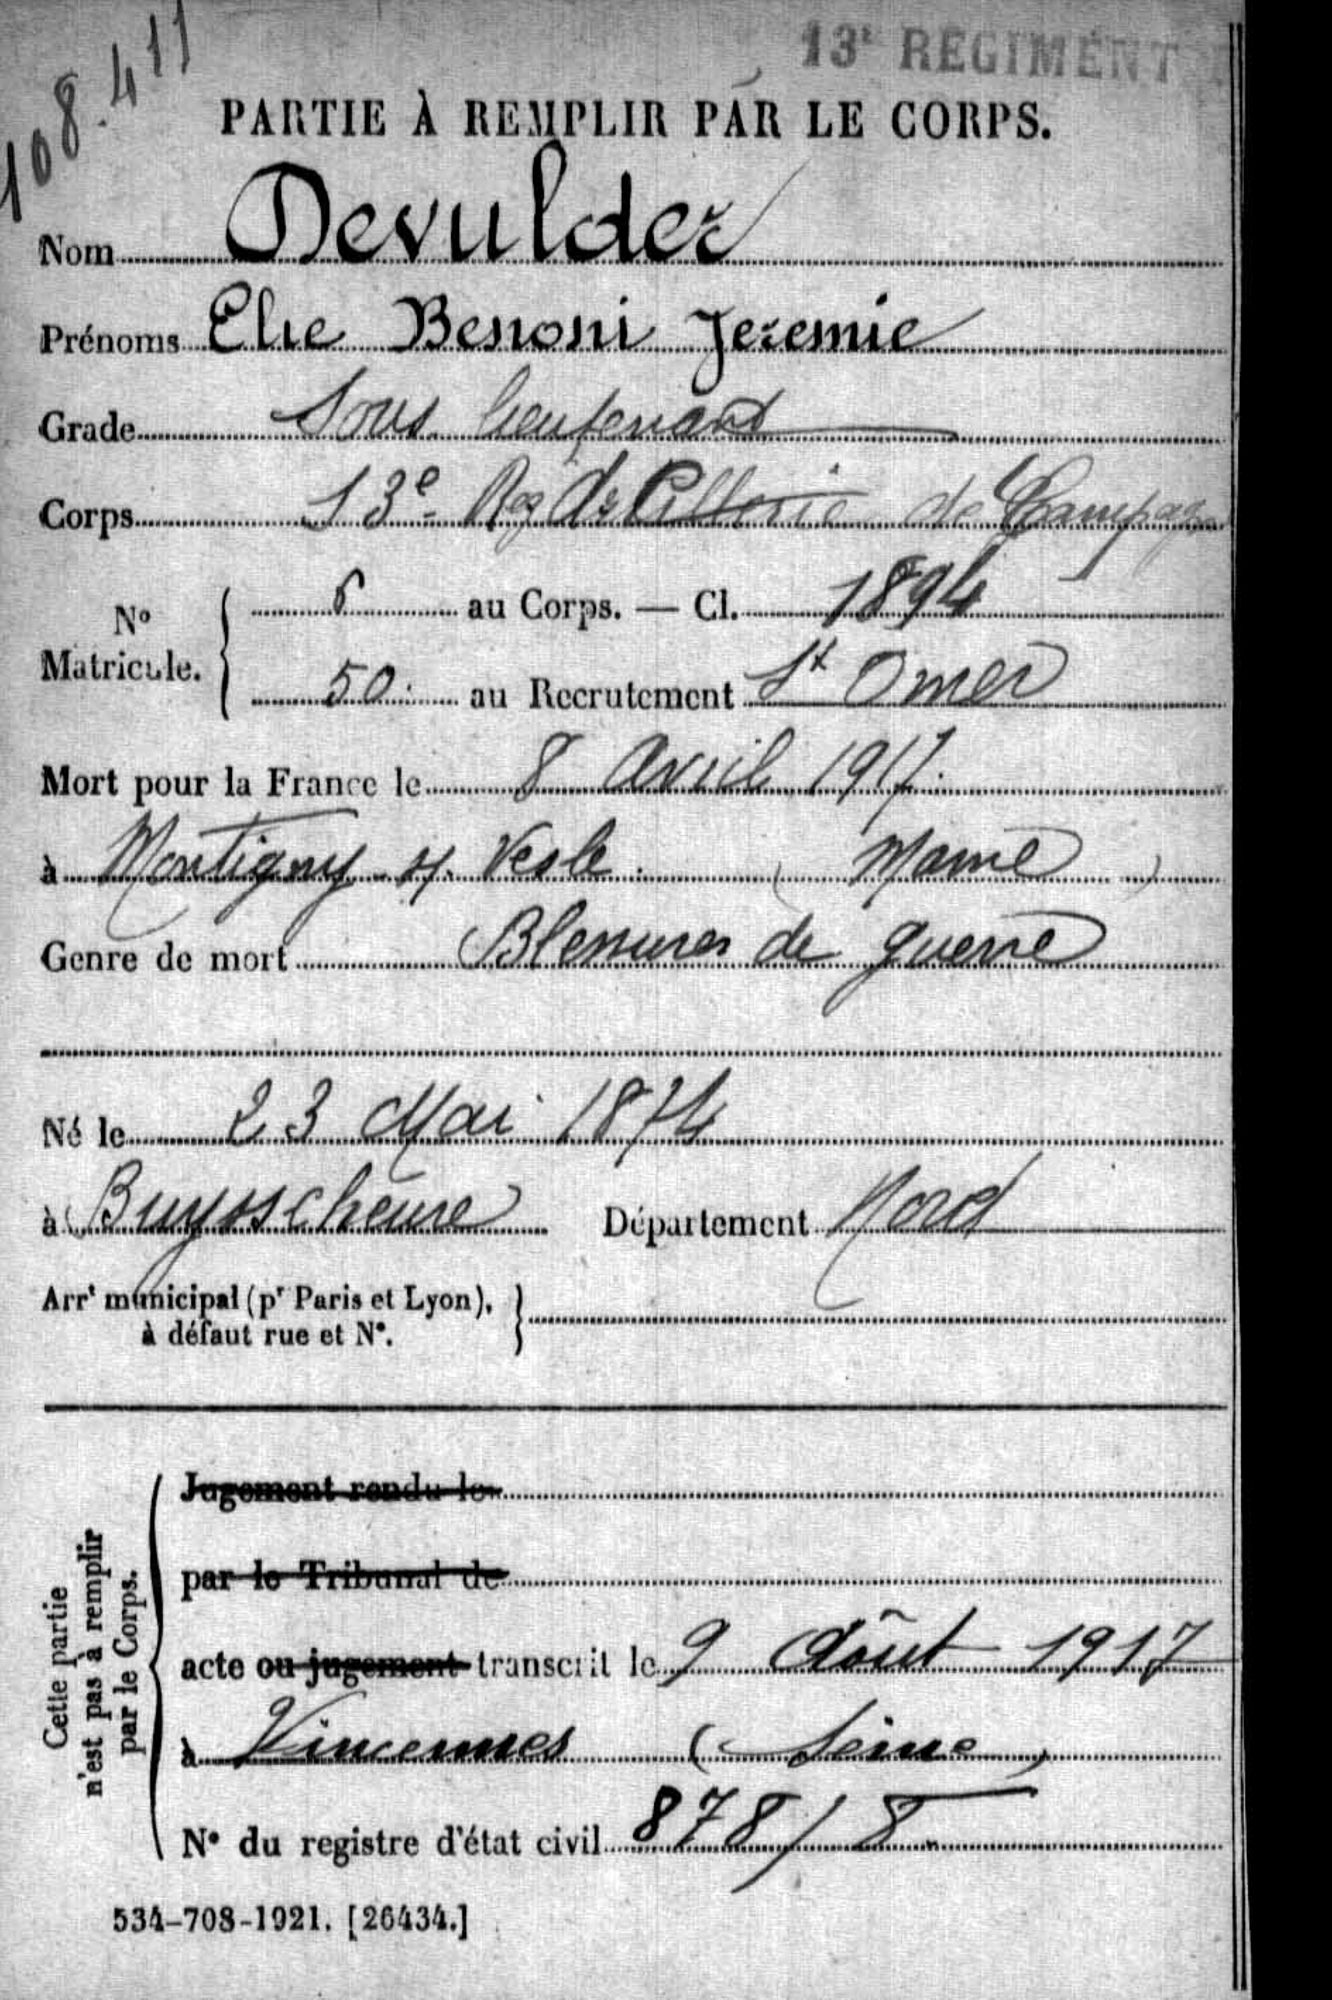 108.411
13e REGIMENT
PARTIE À REMPLIR PAR LE CORPS.
Nom Devulder
Prénoms Elie Benoni Jeremie
Grade Sous lieutenant
Corps 13e Reg d'Artillerie de Campagne
No Matricule. { 6 au Corps. — Cl. 1894
50. au Recrutement St Omer
Mort pour la France le 8 Avril 1917.
à Montigny s/. Vesle. (Marne)
Genre de mort Blessures de guerre
Né le 23 Mai 1874
à Buysscheure Département Nord
Arrt municipal (pr Paris et Lyon), }
à défaut rue et N°.
Cette partie
n'est pas à remplir
par le Corps.
Jugement rendu le
par le Tribunal de
acte ou jugement transcrit le 9 Août 1917
à Vincennes (Seine)
N° du registre d'état civil 878/8.
534-708-1921. [26434.]